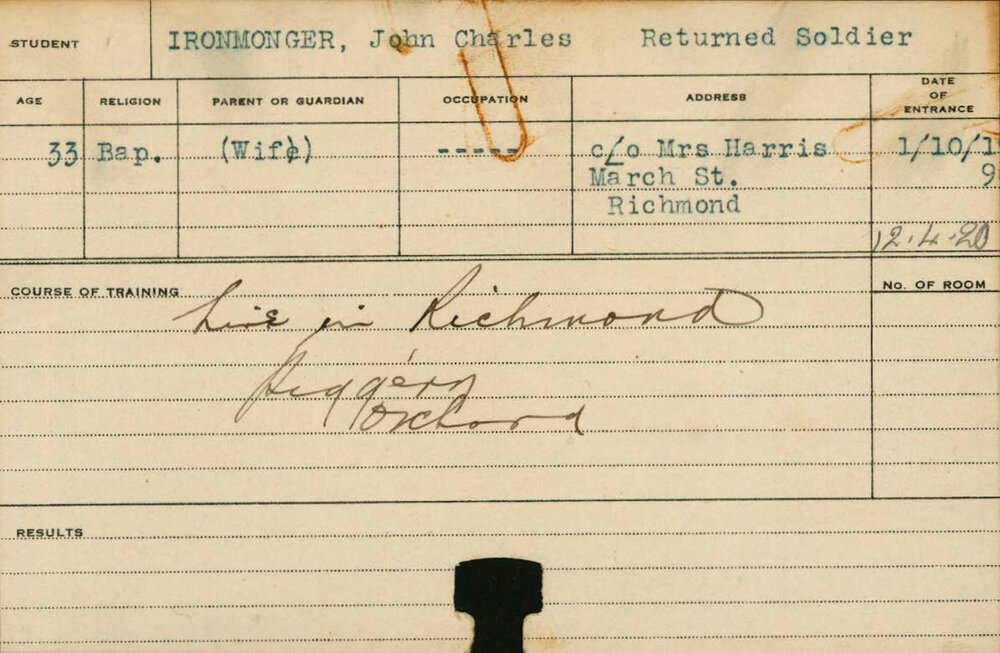 STUDENT IRONMONGER, John Charles Returned Soldier
AGE RELIGION PARENT OR GUARDIAN OCCUPATION ADDRESS DATE OF ENTRANCE
33 Bap. (Wife) ----- c/o Mrs Harris 1/10/1
March St. 9
Richmond
12.4.20
COURSE OF TRAINING No. OF ROOM
Live in Richmond
Orchard
RESULTS